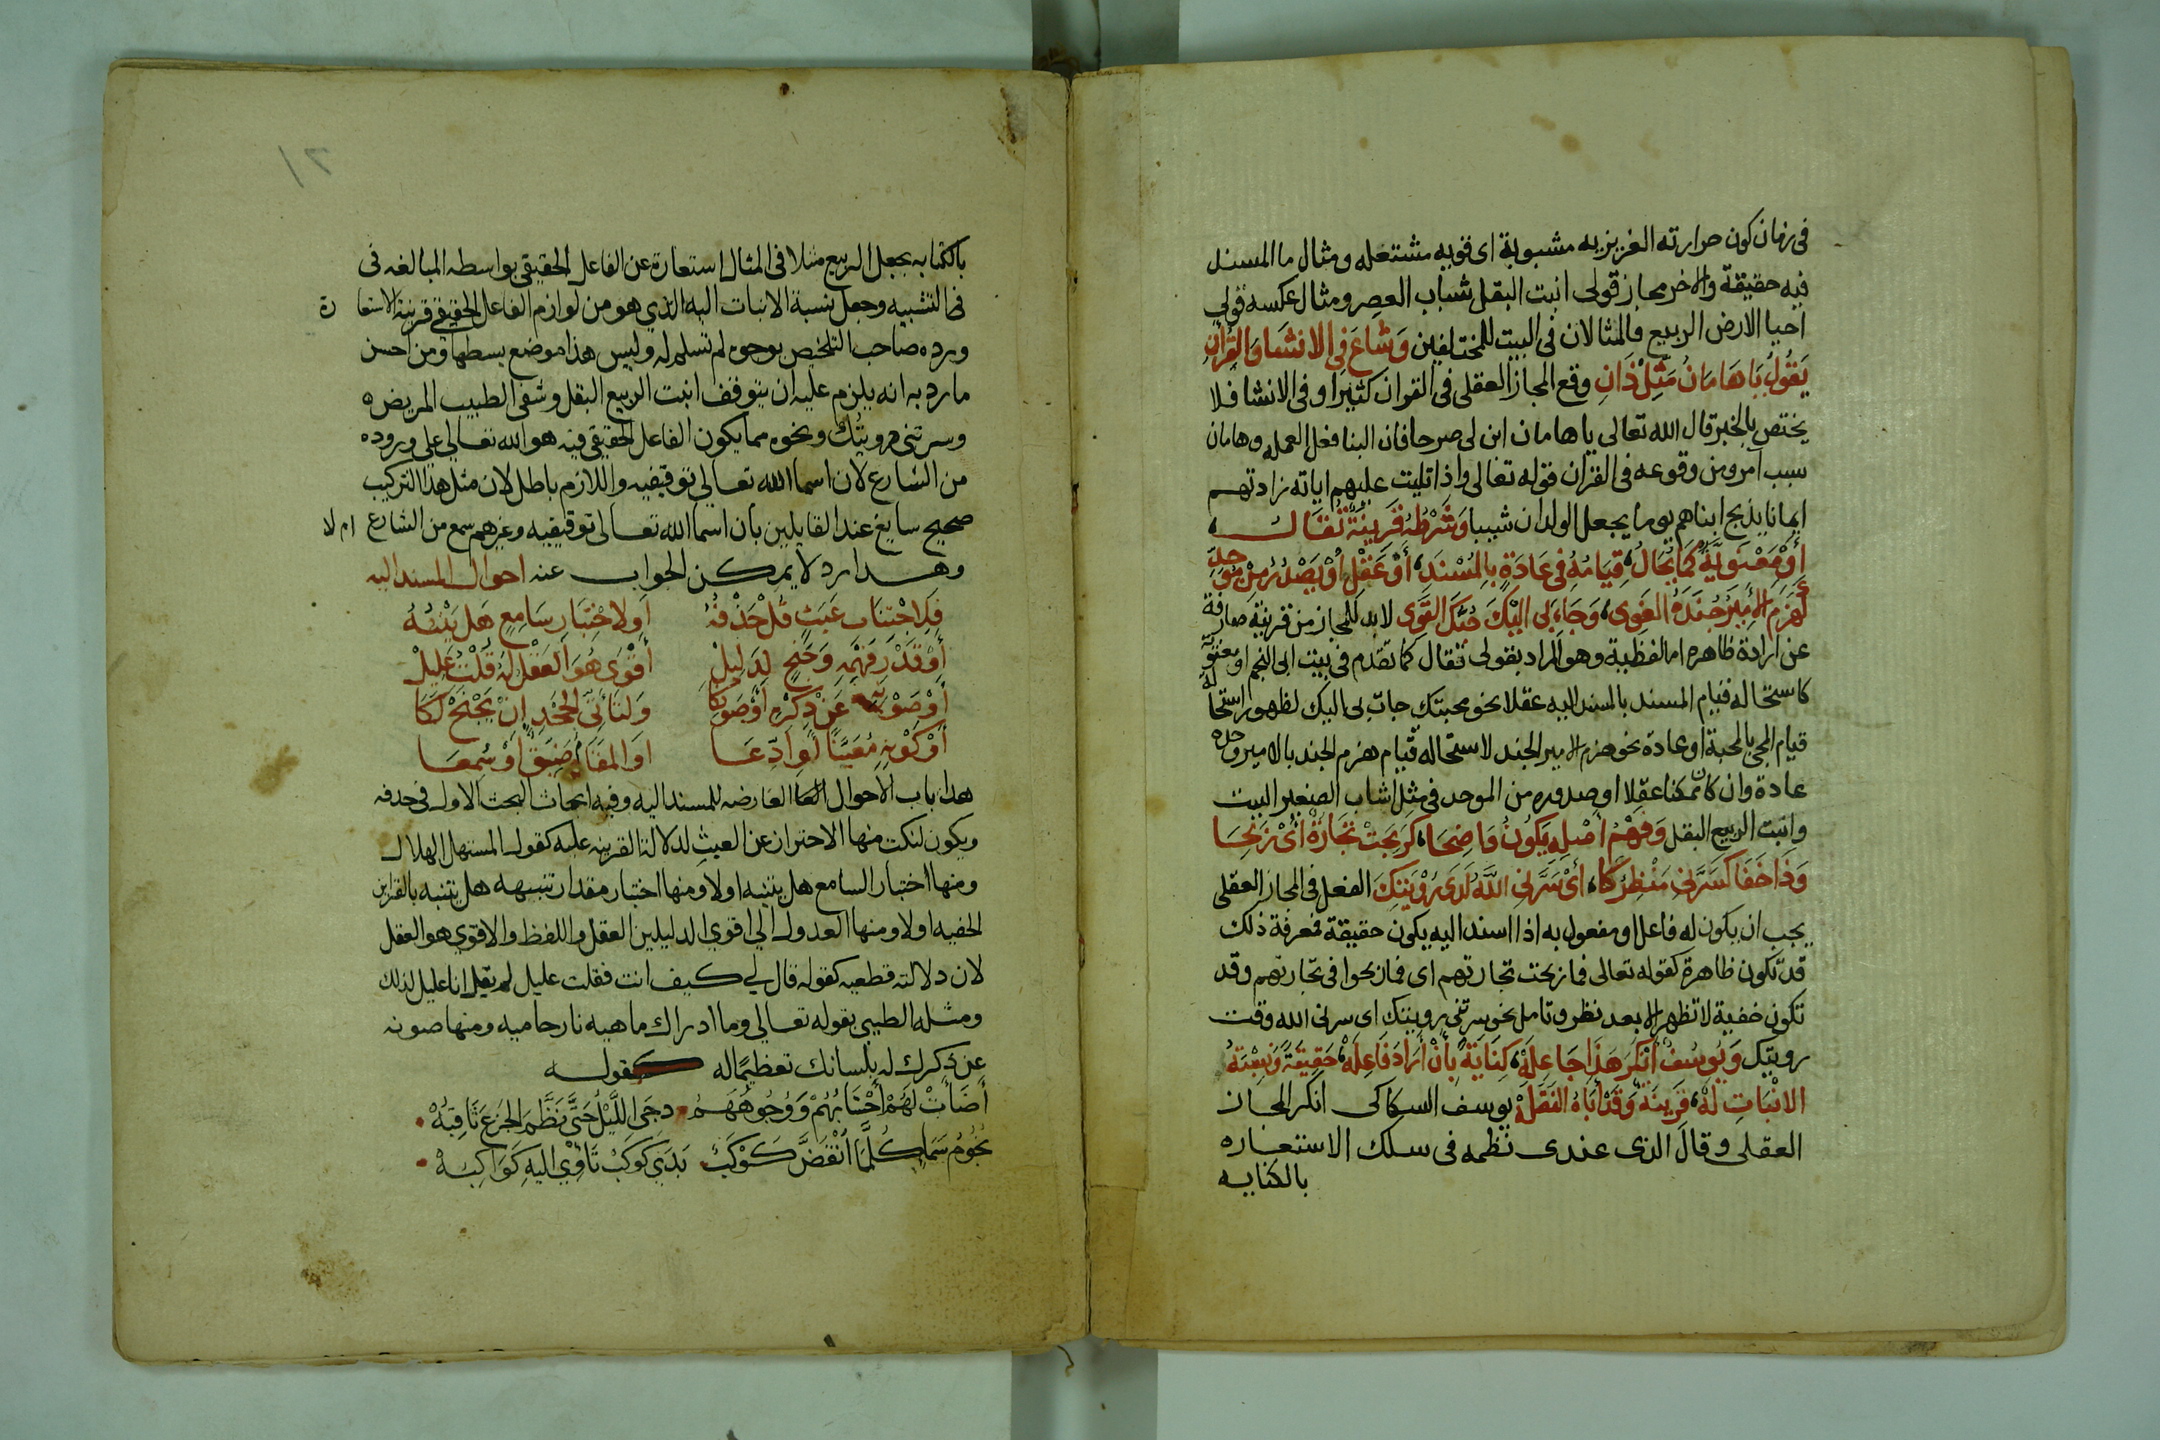 فى زمان كون حرارته الغريزيه مشبوبة اى قويه مشتعله ومثال ما المسند
فيه حقيقة والاخر مجاز قولى انبت البقل شباب العصر ومثال عكسه قولى
احيا الارض الربيع فالمثالان فى البيت للمختلفين وَشَاعَ فِى الانْشَا وَالقُرْآنِ
يَقُولُ يَا هَامَانُ مَثِّلْ ذَانِ وقع المجاز العقلى فى القران كثيرا وفى الانشا فلا
يختص بالخبر قال الله تعالى يا هامان ابن لى صرحا فان البنا فعل العمله وهامان
سبب امر ومن وقوعه فى القران قوله تعالى واذا تليت عليهم اياته زادتهم
ايمانا يذبح ابناهم يوما يجعل الولدان شيبا وَشَرْطُهُ قَرِينَةٌ تُقَالُ
أَوْ مَعْنَوِيَّةٌ كَمَا يُحَالُ، قِيَامُهُ فِى عَادَةٍ بِالمُسْنَدِ، أَوْ عَقْلٍ أَوْ يَصْدُرُ مِنْ مُوَحِّدِ
كَهَزَمَ الأمِيرُ جُنْدَهُ الغَوِى، وَجَاءَ بِى إِلَيْكَ حُبُّكَ القَوِى لابد للمجاز من قرينة صارفة
عن ارادة ظاهره اما لفظية وهو المراد بقولى تقال كما تقدم فى بيت ابى النجم او معنوية
كاستحالة قيام المسند بالمسند اليه عقلا نحو محبتك جات بى اليك لظهور استحالة
قيام المجى بالمحبة او عادة نحو هزم الامير الجند لاستحالة قيام هزم الجند بالامير وحده
عادة وان كان ممكنا عقلا او صدوره من الموحد فى مثل اشاب الصغير البيت
وانبت الربيع البقل وَفَهْمُ أَصْلِهِ يَكُونُ وَاضِحَا، كَرَبِحَتْ تِجَارَةٌ أَىْ رَبِحَا
وَذَا خَفَا كَسَرَّنِى مَنْظَرُكَا، أَىْ سَرَّنِى اللَّهُ لَدَى رُؤْيَتِكَ الفعل فى المجاز العقلى
يجب ان يكون له فاعل او مفعول به اذا اسند اليه يكون حقيقة فمعرفة ذلك
قد تكون ظاهرة كقوله تعالى فما ربحت تجارتهم اى فما ربحوا فى تجارتهم وقد
تكون خفية لا تظهر الا بعد نظر وتامل نحو سرتنى رويتك اى سرنى الله وقت
رويتك وَيُوسُفٌ أَنْكَرَ هَذَا جَاعِلَهْ، كِنَايَةً بِأَنْ أَرَادَ فَاعِلَهْ، حَقِيقَةً وَنِسْبَةُ
الانْبَاتِ لَهْ، قَرِينَةٌ وَقَدْ أَبَاهُ النَقَلَهْ يوسف السكاكى انكر المجاز
العقلى وقال الذى عندى نظمه فى سلك الاستعاره
بالكنايه
بالكنايه بجعل الربيع مثلا فى المثال استعارة عن الفاعل الحقيقى بواسطه المبالغه فى
فى التشبيه وجعل نسبة الانبات اليه الذي هو من لوازم الفاعل الحقيقي قرينة الاستعارة
ورده صاحب التلخيص بوجوه لم تسلم له وليس هذا موضع بسطها ومن احسن
ما رد به انه يلزم عليه ان يتوقف انبت الربيع البقل وشفى الطبيب المريض
وسرتني رويتك ونحوه مما يكون الفاعل الحقيقي فيه هو الله تعالي علي وروده
من الشارع لان اسما الله تعالي توقيفيه واللازم باطل لان مثل هذا التركيب
صحيح سايغ عند القايلين بان اسما الله تعالى توقيفيه وغيرهم سمع من الشارع ام لا
وهذا رد لا يمكن الجواب عنه احوال المسند اليه
فَلاِجْتِنَابِ عَبَثٍ قُلْ حَذْفُهُ أَوِ لاخْتِبَارِ سَامِعٍ هَل يَنْبُهُ
أَوْ قَدْرِ فَهْمِهِ وَجَنْحٍ لِدَلِيلْ أَقْوَى هُوَ العَقْلُ لَهُ قُلْتُ عَلِيلْ
أَوْ صَوْنِهِ عَنْ ذِكْرِهِ أَوْ صَوْنِكَا وَلِتَأَتِّى الجَحْدِ اِنْ يَجْنَحْ لَكَا
أَوْ كَوْنِهِ مُعَيَّنًا أَوِ ادِّعَا اَوِ المَقَامُ ضَيِّقٌ أَوْ سُمِعَا
هذا باب الاحوال العارضه للمسند اليه وفيه ابحاث البحث الاول في حذفه
ويكون لنكت منها الاحتراز عن العبث لدلالة القرينه عليه كقول المستهل الهلال
ومنها اختبار السامع هل يتنبه او لا ومنها اختبار مقدار تنبيهه هل يتنبه بالقراين
الخفيه او لا ومنها العدول الي اقوي الدليلين العقل واللفظ والاقوي هو العقل
لان دلالته قطعيه كقوله قال لي كيف انت قلت عليل لم يقل انا عليل لذلك
ومثله الطيبى بقوله تعالي وما ادراك ماهيه نار حاميه ومنها صونه
عن ذكرك له بلسانك تعظيمًا له كقوله
أَضَاءَتْ لَهُمْ أَحْسَابُهُمْ وَوُجُوهُهُمُ دجَى اللَّيْلِ حَتَّى نَظَّمَ الجَزْعَ ثَاقِبُهْ
نُجُومُ سَمَاءٍ كُلَّمَا انْقَضَّ كَوْكَبٌ بَدَى كَوْكَبٌ تَأْوِي اليهِ كَوَاكِبُهْ